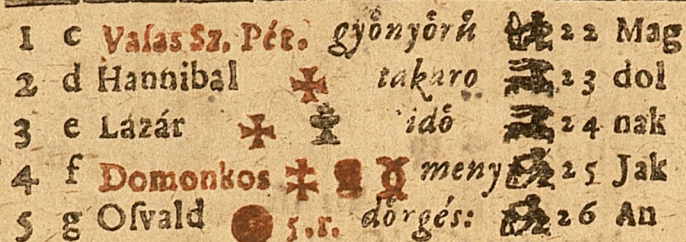 1 c Vaſas Sz. Pét. gyoͤnyoͤruͤ 22 Mag
2 d Hannibal takaro 23 dol
3 e Lázár idoͤ 24 nak
4 f Domonkos meny 25 Jak
5 g Oſvald 5. r. doͤrgés: 26 An